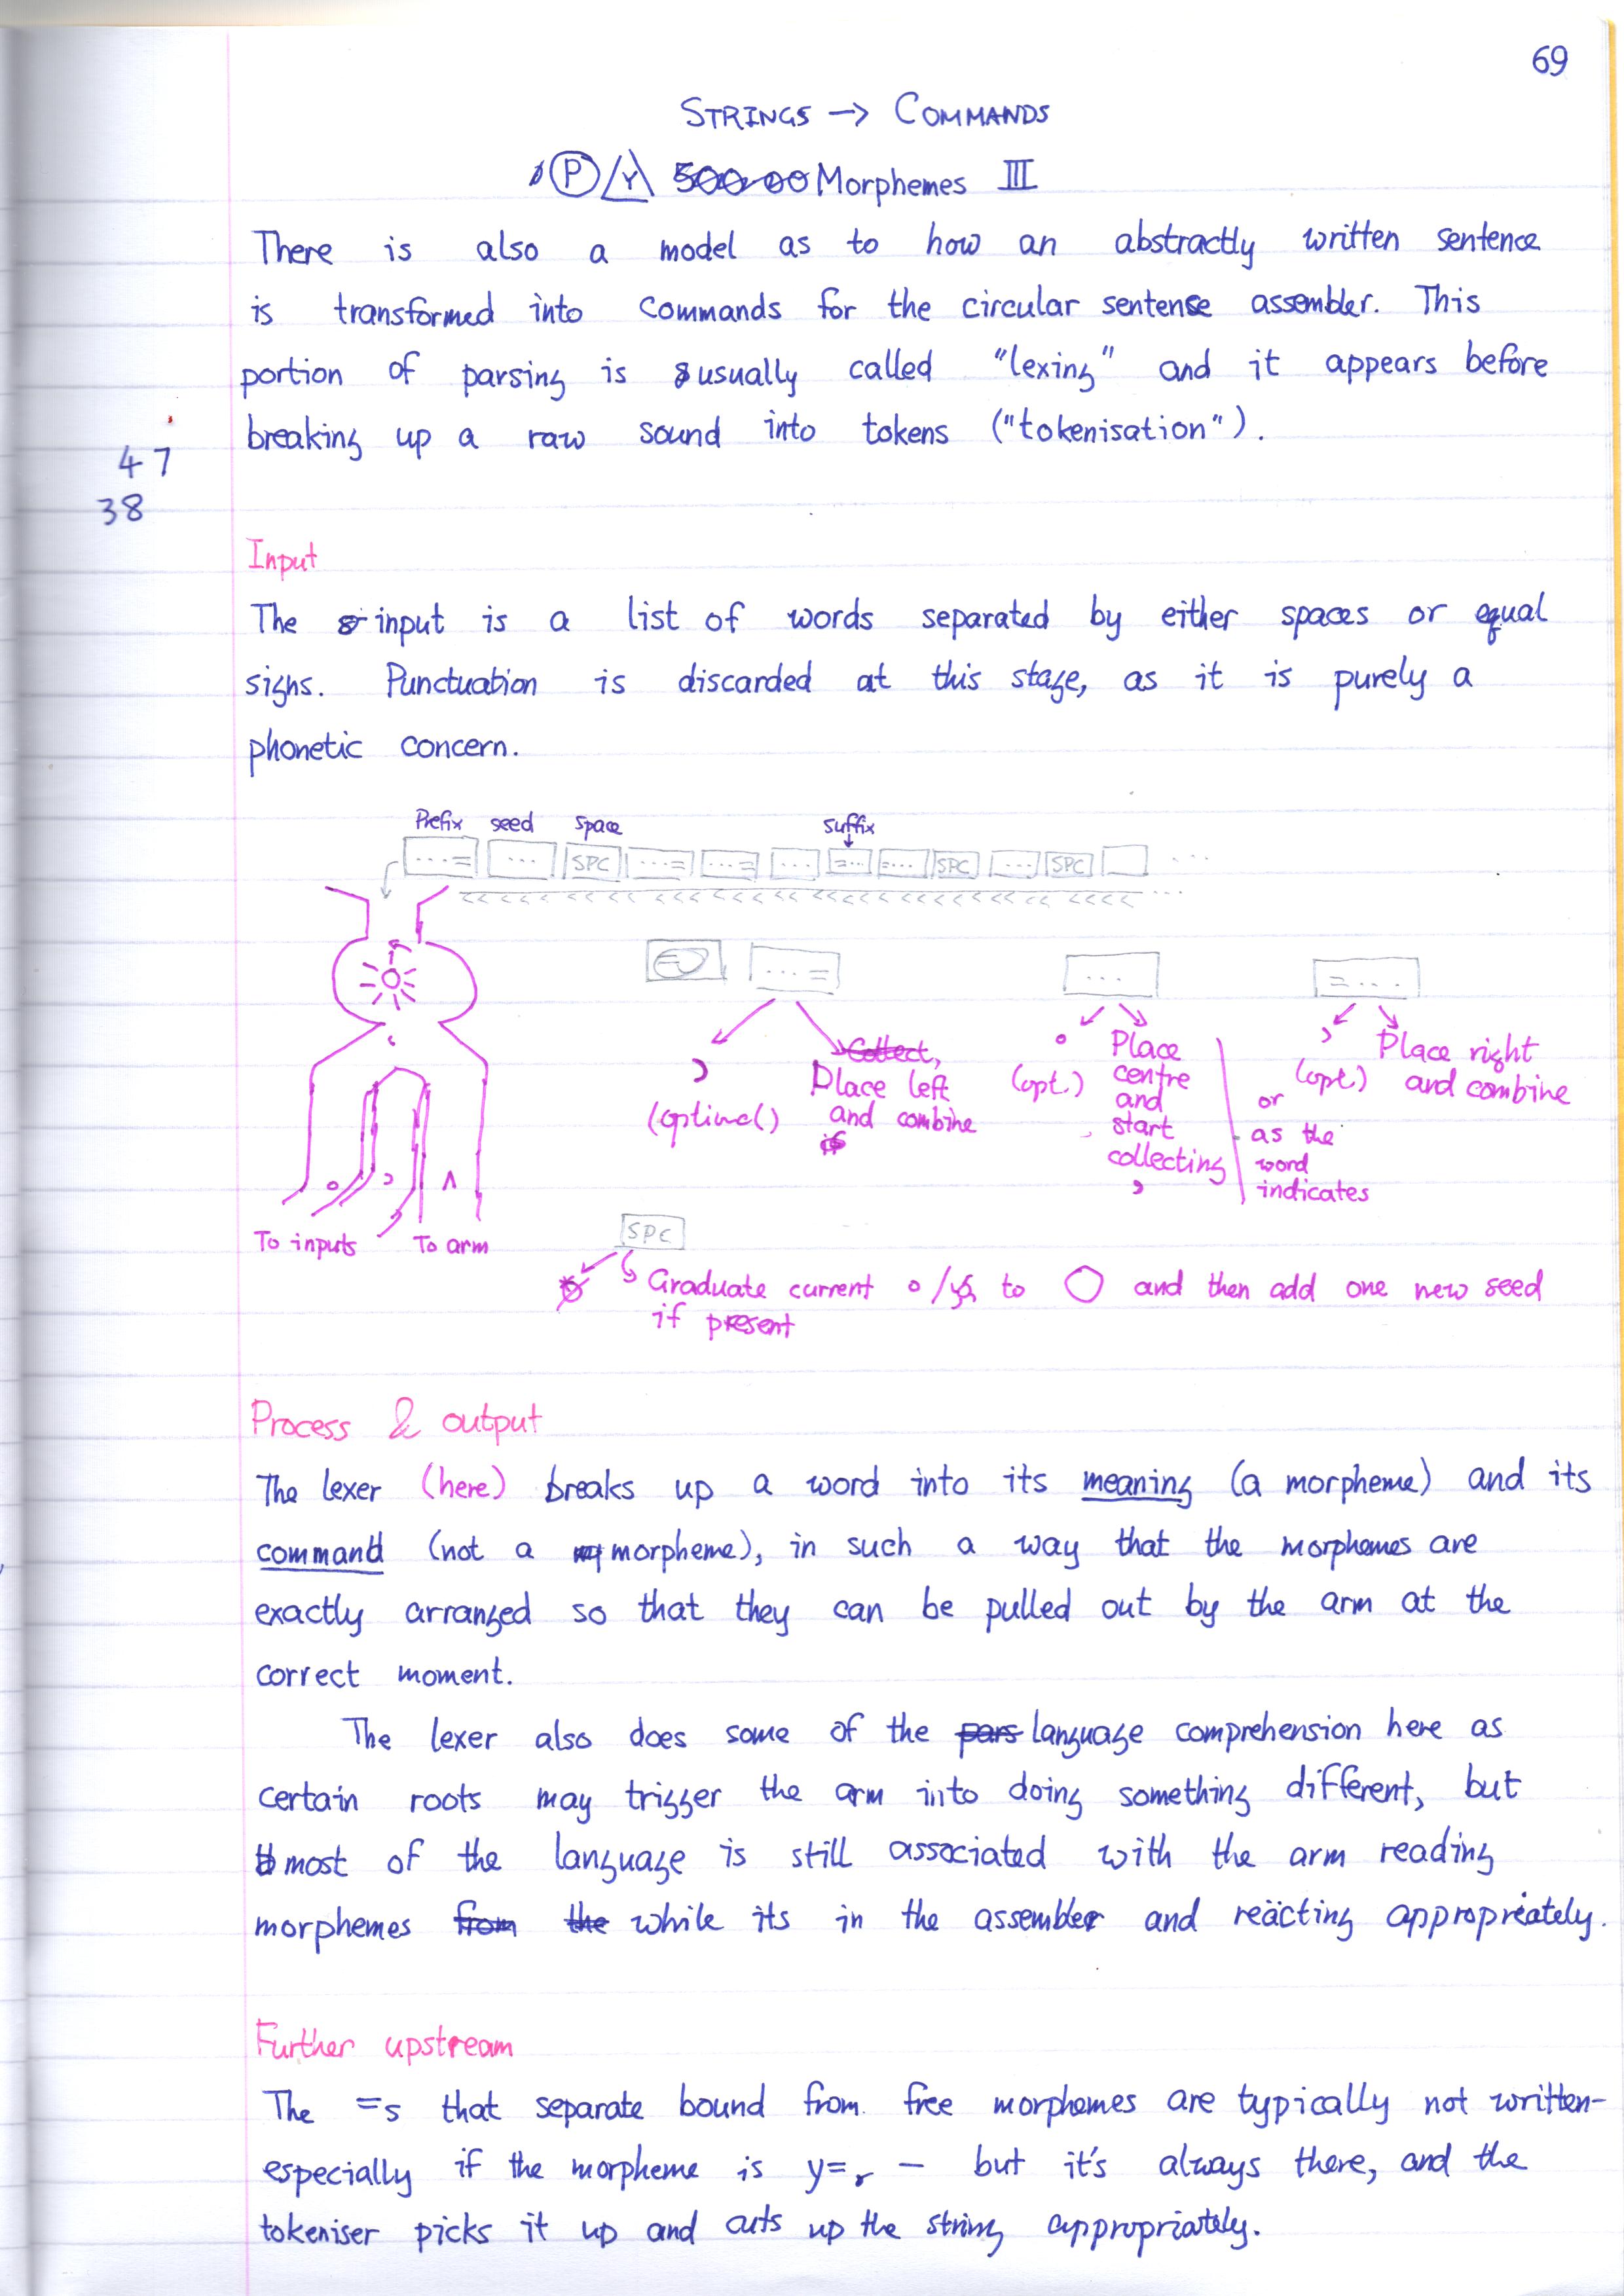 69
STRINGS → COMMANDS
P / Y Morphemes III
There is also a model as to how an abstractly written sentence
is transformed into commands for the circular sentence assembler. This
portion of parsing is usually called "lexing" and it appears before
breaking up a raw sound into tokens ("tokenisation").
47
38
Input
The input is a list of words separated by either spaces or equal
signs. Punctuation is discarded at this stage, as it is purely a
phonetic concern.
Prefix seed space suffix
...= ... SPC ...= ...= ... =... =... SPC ... SPC ...
...= ... =...
(optional) Collect,
Place left
and combine
(opt.) Place
centre
and
start
collecting
or
as the
word
indicates
(opt.) Place right
and combine
To inputs To arm
SPC
Graduate current o / to ○ and then add one new seed
if present
Process & output
The lexer (here) breaks up a word into its meaning (a morpheme) and its
command (not a morpheme), in such a way that the morphemes are
exactly arranged so that they can be pulled out by the arm at the
correct moment.
The lexer also does some of the pars language comprehension here as
certain roots may trigger the arm into doing something different, but
most of the language is still associated with the arm reading
morphemes from the while its in the assembler and reäcting appropriately.
Further upstream
The =s that separate bound from free morphemes are typically not written-
especially if the morpheme is y= - but it's always there, and the
tokeniser picks it up and cuts up the string appropriately.